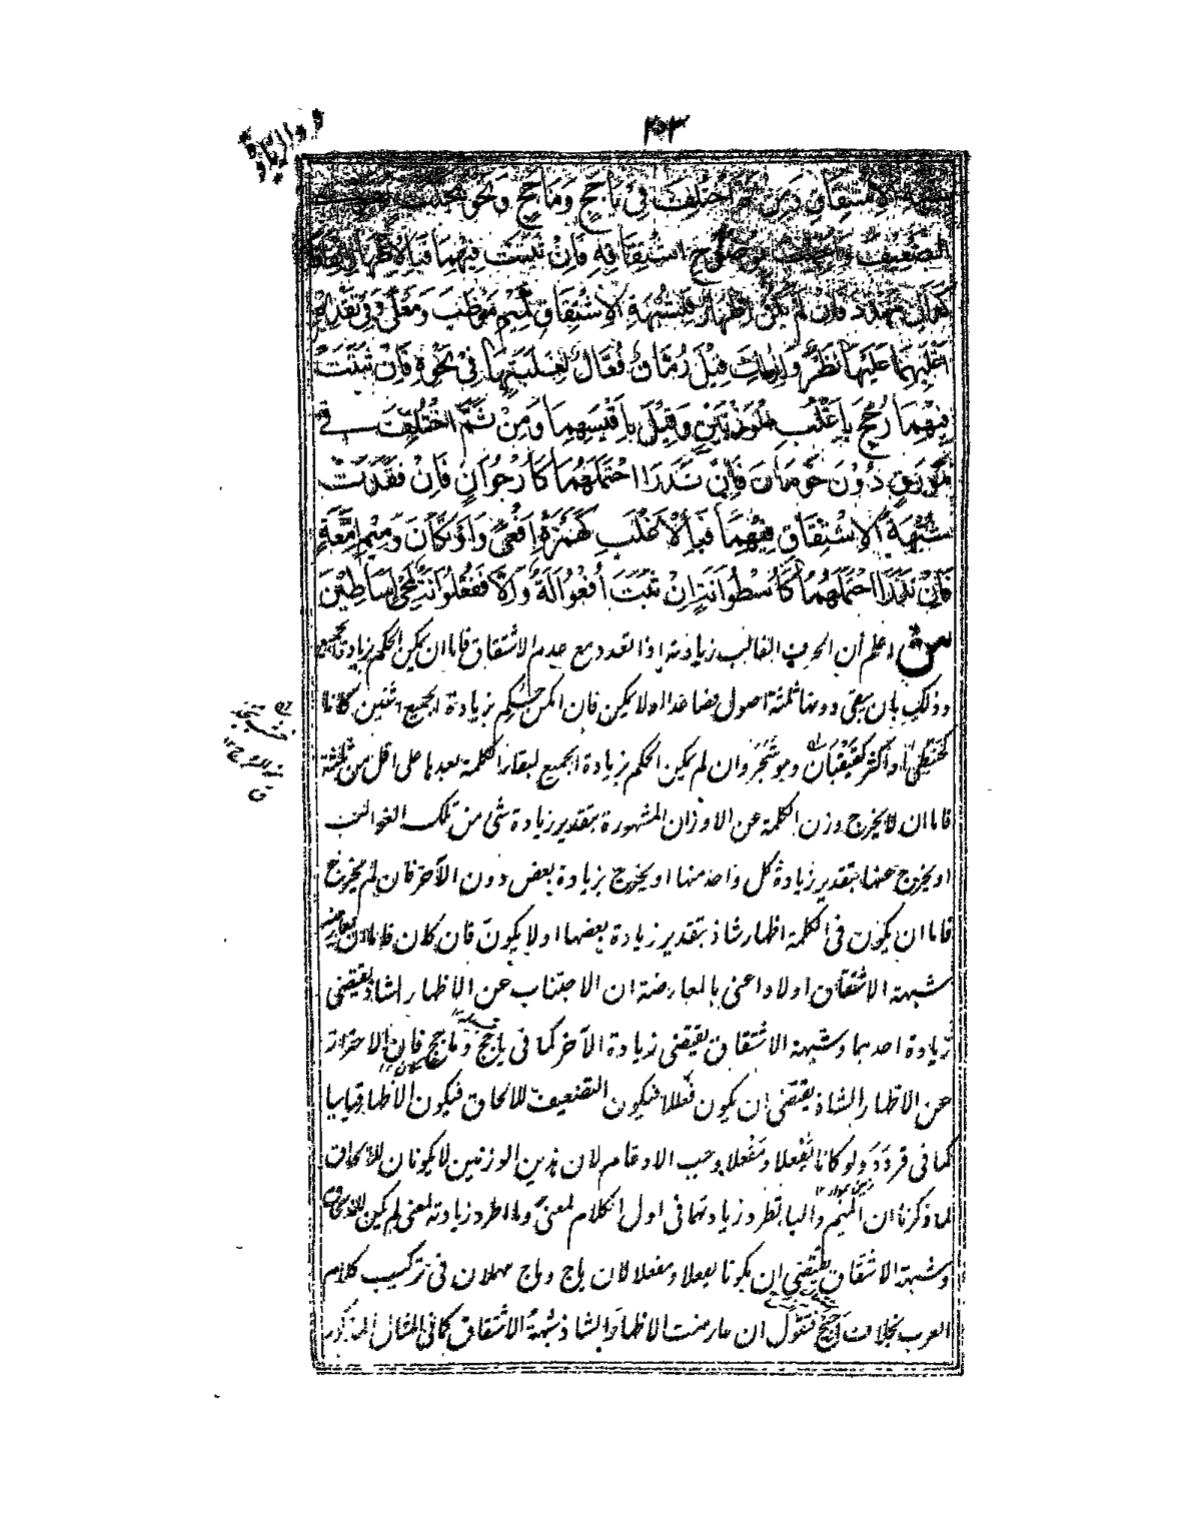 ذو الزيادة
٢٥٣
شبهة الاشتقاق وَمِنْ ثَمَّ اخْتُلِفَ فِي يَأْجَجَ وَمَأْجَجَ وَنَحْوُ مَحْبَبَ
التَّضْعِيفَ وَأُجِيبَ بِوُضُوحِ اشْتِقَاقِهِ فَإِنْ ثَبَتَتْ فِيهِمَا فَبِالْإِظْهَارِ اتِّفَاقًا
كَدَالِ مَهْدَدَ فَإِنْ لَمْ يَكُنْ إِظْهَارٌ فَبِشُبْهَةِ الْاِشْتِقَاقِ كَمِيمِ مَوْظَبَ وَمَعْلًى وَفِي تَقْدِيمِ
أَغْلَبِهِمَا عَلَيْهَا نَظَرٌ وَلِذٰلِكَ قِيلَ رُمَّانٌ فُعَّالٌ لِغَلَبَتِهَا فِي نَحْوِهِ فَإِنْ ثَبَتَتْ
فِيهِمَا رُجِّحَ بِأَغْلَبِ الْوَزْنَيْنِ وَقِيلَ بِأَقْيَسِهِمَا وَمِنْ ثَمَّ اخْتُلِفَ فِي
مَوْرَقٍ دُونَ حَوْمَانَ فَإِنْ نَدَرَا احْتَمَلَهُمَا كَأُرْجُوَانٍ فَإِنْ فُقِدَتْ
شُبْهَةُ الْاِشْتِقَاقِ فِيهِمَا فَبِالْأَغْلَبِ كَهَمْزَةِ أَفْعًى وَأَوْتَكَانَ وَمِيمِ إِمَّعَةٍ
فَإِنْ نَدَرَا احْتَمَلَهُمَا كَأُسْطُوَانَةٍ إِنْ ثَبَتَ أُفْعُوَالَةٌ وَإِلَّا فَفُعْلُوَانَةٌ لِمَجِيءِ أَسَاطِينَ
ش اعلم ان الحرف الغالب زيادته اذا تعدد مع عدم الاشتقاق فاما ان يمكن الحكم بزيادة الجميع
وذلك بان يبقى دونها ثلثة اصول فصاعدا او لا يمكن فان امكن حكم بزيادة الجميع اثنين كانا
كحبنطى او اكثر كقيقبان وهو شجر وان لم يكن الحكم بزيادة الجميع لبقاء الكلمة بعدها على اقل من ثلثة
فاما ان لا يخرج وزن الكلمة عن الاوزان المشهورة بتقدير زيادة شئ من تلك الغوالب
او يخرج عنها بتقدير زيادة كل واحد منها او يخرج بزيادة بعض دون الآخر فان لم يخرج
فاما ان يكون فى الكلمة اظهار شاذ بتقدير زيادة بعضها او لا يكون فان كان فاما ان يعارضه
شبهة الاشتقاق اولا واعنى بالمعارضة ان الاجتناب عن الاظهار الشاذ يقتضى
زيادة احدهما وشبهة الاشتقاق يقتضى زيادة الآخر كما فى ياجج وماجج فان الاحتراز
عن الاظهار الشاذ يقتضى ان يكون فعللا فيكون التضعيف للالحاق فيكون الاظهار قياسيا
كما فى قردد ولو كانا يفعلا ومفعلا وجب الادغام لان هذين الوزنين لا يكونان للالحاق
لما ذكرنا ان الميم والياء تطرد زيادتهما فى اول الكلام لمعنى وما اطرد زيادته لمعنى لم يكن للالحاق
وشبهة الاشتقاق يقتضى ان يكونا يفعلا ومفعلا لان ياج وماج مهملان فى تركيب كلام
العرب بخلاف اجج فنقول ان عارضت الاظهار الشاذ شبهة الاشتقاق كما فى المثال المذكور